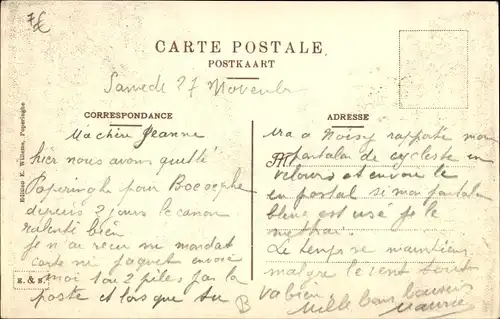 7€
CARTE POSTALE
POSTKAART
Samedi 27 Novembre
CORRESPONDANCE
Ma chère Jeanne
hier nous avons quitté
Poperinghe pour Boesesghe
depuis 2 jours le canon
ralenti bien
je n'ai reçu ni mandat
carte ni paquet envoie
moi 1 ou 2 piles par la
poste et lors que tu
E. & B.
Edition E. Willems, Poperinghe
B
ADRESSE
ira a Noisy rapporte mon
pantalon de cycliste en
velours et envoie le
en postal si mon pantalon
bleue est usé je le
mettrai
Le temps se maintient
malgre le vent tout
va bien
Mille bons baisers
Maurice